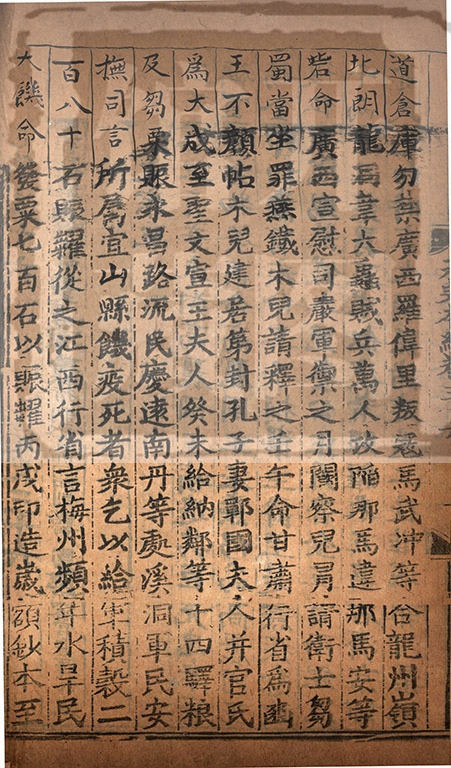 道倉庫勿禁廣西羅偉里叛寇馬武冲等合龍州嶺
北朗龍馮韋六蟲賊兵萬人攻陷那馬達那馬安等
砦命廣西宣慰司嚴軍禦之月闊察兒冐請衛士芻
蜀當坐罪燕鐵木兒請釋之壬午命甘肅行省為豳
王不顔帖木兒建居第封孔子妻鄆國夫人并官氏
為大成至聖文宣王夫人癸未給納鄰等十四驛粮
及芻粟賑永昌路流民慶遠南丹等處溪洞軍民安
撫司言所属宜山縣饑疫死者衆乞以給軍積穀二
百八十石賑糶從之江西行省言梅州頻年水旱民
大饑命發粟七百石以賑糶丙戌印造歲額鈔本至